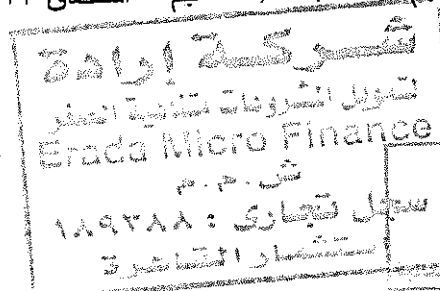 شركة إرادة
لتمويل المشروعات متناهية الصغر
Erada Micro Finance
ش.م.م
سجل تجاري : ١٨٩٢٨٨
استثمار القاهرة